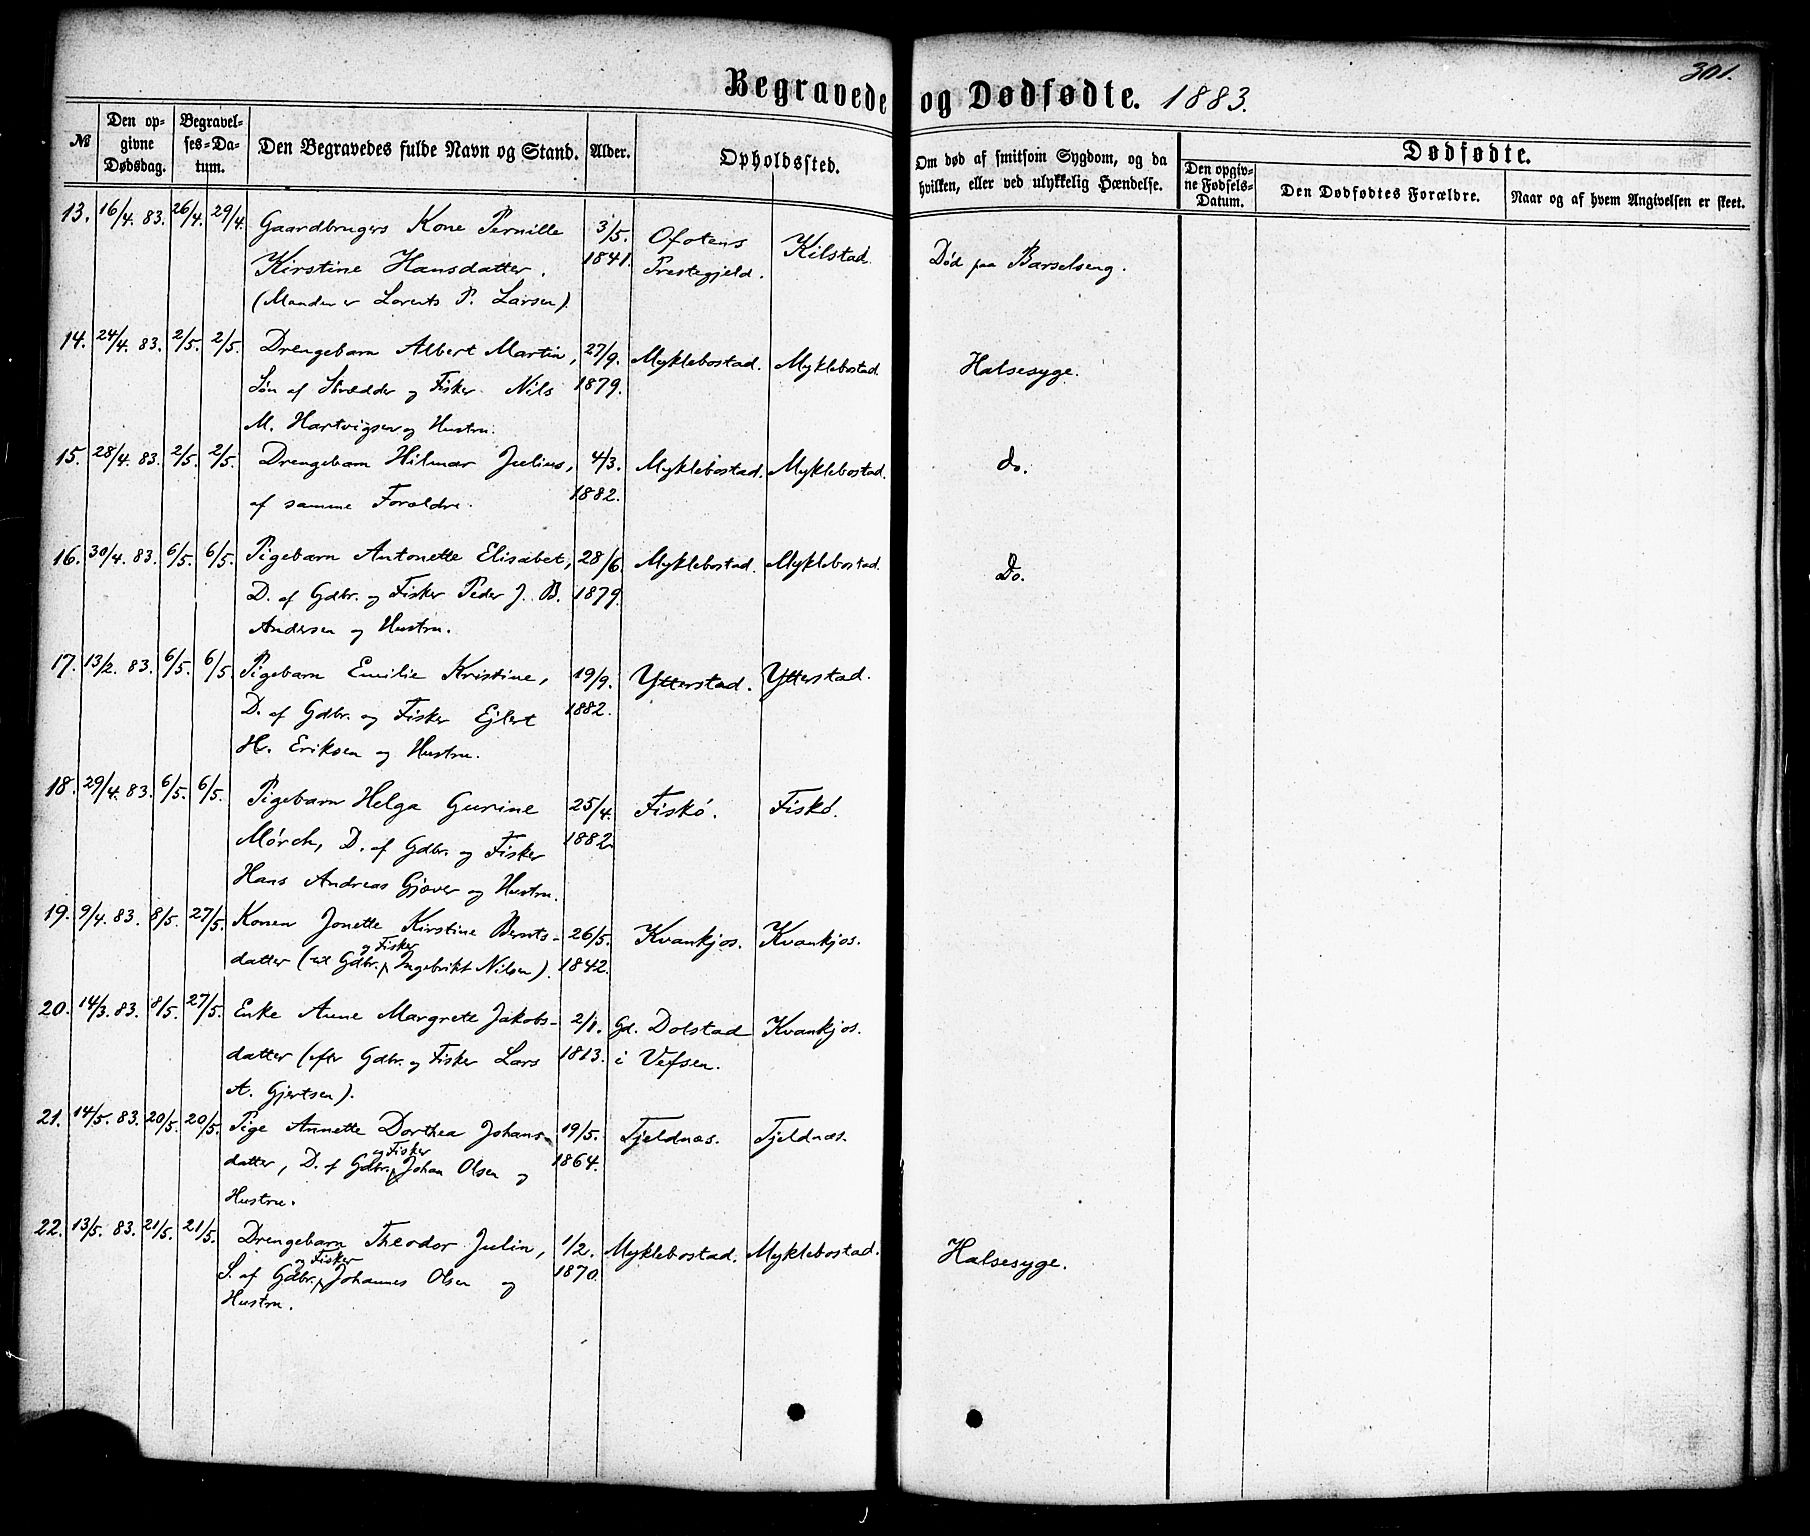 301.
Begravede og Dødfødte. 1883.
№
Den opgivne Dødsdag.
Begravelses-Datum.
Den Begravedes fulde Navn og Stand.
Alder.
Opholdssted.
Om død af smitsom Sygdom, og da hvilken, eller ved ulykkelig Hændelse.
Dødfødte.
Den opgivne Fødsels-Datum.
Den Dødfødtes Forældre.
Naar og af hvem Angivelsen er skeet.
13. 16/4. 83. 26/4. 29/4. Gaardbrugers Kone Pernille 3/5. Ofotens Kilstad. Død paa Barselseng.
Kirstine Hansdatter. 1841. Prestegjeld.
(Manden er Lorents P. Larsen).
14. 24/4. 83. 2/5. 2/5. Drengebarn Albert Martin, 27/9. Myklebostad. Myklebostad. Halsesyge.
Søn af Skrædder og Fisker Nils 1879.
M. Hartvigsen og Hustru.
15. 28/4. 83. 2/5. 2/5. Drengebarn Hilmar Julius, 4/3. Myklebostad. Myklebostad. do.
af samme Forældre. 1882.
16. 30/4. 83. 6/5. 6/5. Pigebarn Antonette Elisabet, 28/6. Myklebostad. Myklebostad. Do.
D. af Gdbr. og Fisker Peder J. B. 1879.
Andersen og Hustru.
17. 13/2. 83. 6/5. 6/5. Pigebarn Emilie Kristine, 19/9. Ytterstad. Ytterstad.
D. af Gdbr. og Fisker Ejlert 1882.
H. Eriksen og Hustru.
18. 29/4. 83. 6/5. 6/5. Pigebarn Helga Gurine 25/4. Fiskø. Fiskø.
Mørch, D. af Gdbr. og Fisker 1882.
Hans Andreas Gjæver og Hustru.
19. 9/4. 83. 8/5. 27/5. Konen Jonette Kirstine Bernts- 26/5. Kvankjos. Kvankjos.
og Fisker
datter ( Gdbr. Ingebrikt Nilsen). 1842.
20. 14/3. 83. 8/5. 27/5. Enke Anne Margrete Jakobs- 2/1. Gd. Dolstad Kvankjos.
datter (efter Gdbr. og Fisker Lars 1813. i Vefsen.
A. Gjertsen).
21. 14/5. 83. 20/5. 20/5. Pige Annette Dorthea Johans- 19/5. Tjeldnæs. Tjeldnæs.
og Fisker
datter, D. af Gdbr. Johan Olsen og 1864.
Hustru.
22. 13/5. 83. 21/5. 21/5. Drengebarn Theodor Julin, 1/2. Myklebostad. Myklebostad. Halsesyge.
og Fisker
S. af Gdbr. Johannes Olsen og 1870.
Hustru.